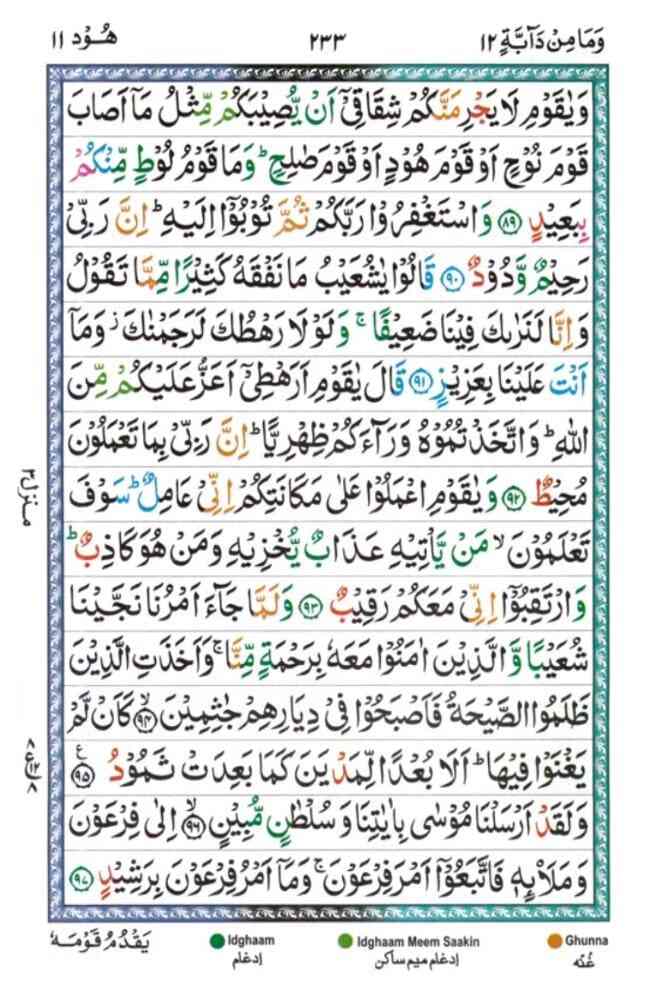 وَمَا مِنْ دَآبَّةٍ ١٢ ٢٣٣ هُوْد ١١
وَيٰقَوْمِ لَا يَجْرِمَنَّكُمْ شِقَاقِيْٓ اَنْ يُّصِيْبَكُمْ مِّثْلُ مَآ اَصَابَ
قَوْمَ نُوْحٍ اَوْ قَوْمَ هُوْدٍ اَوْ قَوْمَ صٰلِحٍ ؕ وَمَا قَوْمُ لُوْطٍ مِّنْكُمْ
بِبَعِيْدٍ ﴿٨٩﴾ وَاسْتَغْفِرُوْا رَبَّكُمْ ثُمَّ تُوْبُوْٓا اِلَيْهِ ؕ اِنَّ رَبِّيْ
رَحِيْمٌ وَّدُوْدٌ ﴿٩٠﴾ قَالُوْا يٰشُعَيْبُ مَا نَفْقَهُ كَثِيْرًا مِّمَّا تَقُوْلُ
وَاِنَّا لَنَرٰىكَ فِيْنَا ضَعِيْفًا ۚ وَلَوْلَا رَهْطُكَ لَرَجَمْنٰكَ ز وَمَآ
اَنْتَ عَلَيْنَا بِعَزِيْزٍ ﴿٩١﴾ قَالَ يٰقَوْمِ اَرَهْطِيْٓ اَعَزُّ عَلَيْكُمْ مِّنَ
اللّٰهِ ؕ وَاتَّخَذْتُمُوْهُ وَرَآءَكُمْ ظِهْرِيًّا ؕ اِنَّ رَبِّيْ بِمَا تَعْمَلُوْنَ
مُحِيْطٌ ﴿٩٢﴾ وَيٰقَوْمِ اعْمَلُوْا عَلٰى مَكَانَتِكُمْ اِنِّيْ عَامِلٌ ؕ سَوْفَ
تَعْلَمُوْنَ ۙ مَنْ يَّاْتِيْهِ عَذَابٌ يُّخْزِيْهِ وَمَنْ هُوَ كَاذِبٌ ؕ
وَارْتَقِبُوْٓا اِنِّيْ مَعَكُمْ رَقِيْبٌ ﴿٩٣﴾ وَلَمَّا جَآءَ اَمْرُنَا نَجَّيْنَا
شُعَيْبًا وَّالَّذِيْنَ اٰمَنُوْا مَعَهٗ بِرَحْمَةٍ مِّنَّا ۚ وَاَخَذَتِ الَّذِيْنَ
ظَلَمُوا الصَّيْحَةُ فَاَصْبَحُوْا فِيْ دِيَارِهِمْ جٰثِمِيْنَ ﴿٩٤﴾ۙ كَاَنْ لَّمْ
يَغْنَوْا فِيْهَا ؕ اَلَا بُعْدًا لِّمَدْيَنَ كَمَا بَعِدَتْ ثَمُوْدُ ﴿٩٥﴾ ع
وَلَقَدْ اَرْسَلْنَا مُوْسٰى بِاٰيٰتِنَا وَسُلْطٰنٍ مُّبِيْنٍ ﴿٩٦﴾ۙ اِلٰى فِرْعَوْنَ
وَمَلَا۟ئِهٖ فَاتَّبَعُوْٓا اَمْرَ فِرْعَوْنَ ۚ وَمَآ اَمْرُ فِرْعَوْنَ بِرَشِيْدٍ ﴿٩٧﴾
منزل ٣
يَقْدُمُ قَوْمَهٗ
Idghaam
إدغام
Idghaam Meem Saakin
إدغام ميم ساكن
Ghunna
غُنّه